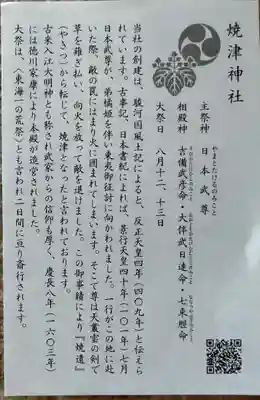 焼津神社
やまとたけるのみこと
主祭神 日本武尊
相殿神 吉備武彦命・大伴武日連命・七束脛命
大祭日 八月十二、十三日
当社の創建は、駿河国風土記によると、反正天皇四年(四〇九年)と伝えら
れています。古事記、日本書紀によれば、景行天皇四十年(一〇一年)七月
日本武尊が、弟橘姫を伴い東夷御征討に向かわれました。一行がこの地に赴
いた際、敵の罠にはまり火に囲まれてしまいます。そこで尊は天叢雲の剣で
草を薙ぎ払い、向火を放って敵を退けました。この御事績により『焼遺』
(やきつ)から転じて、焼津となったと言われております。
古来入江大明神とも称され武家からの信仰も厚く、慶長八年(一六〇三年)
には徳川家康により本殿が造営されました。
大祭は、〈東海一の荒祭〉とも言われ二日間に亘り斎行されます。